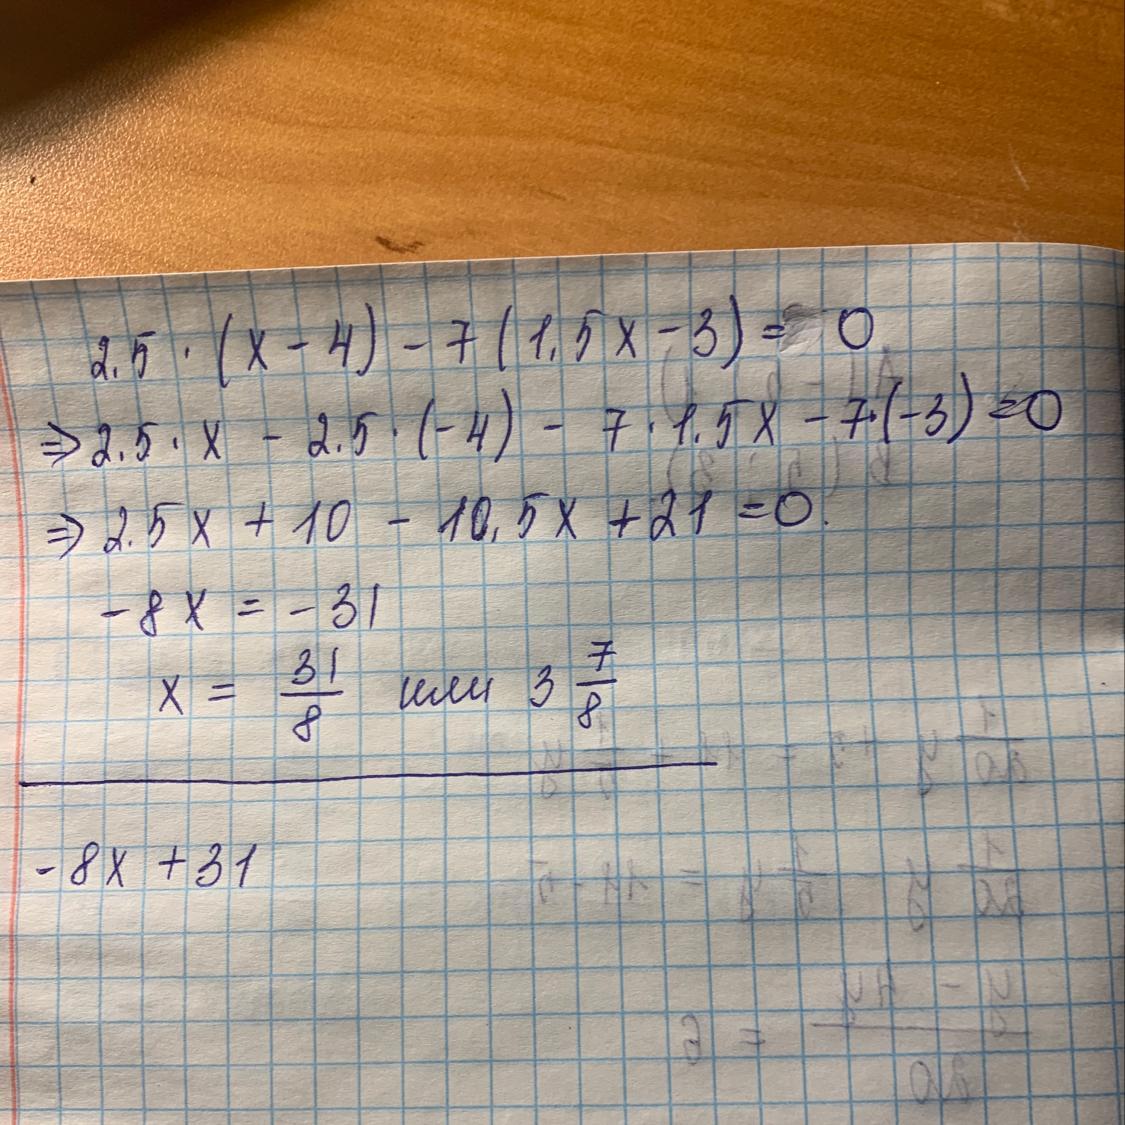 2.5 · (x - 4) - 7 (1,5x - 3) = 0
⇒ 2.5 · x - 2.5 · (-4) - 7 · 1.5x - 7·(-3) = 0
⇒ 2.5x + 10 - 10,5x + 21 = 0.
-8x = -31
x = 31/8 или 3 7/8
-8x + 31